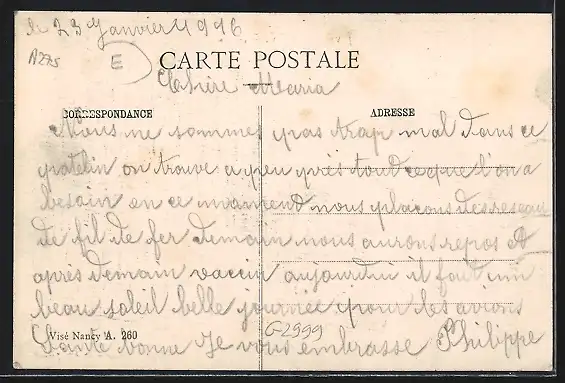 le 23 Janvier 1916
A275
E
CARTE POSTALE
Chère Maria
CORRESPONDANCE
ADRESSE
Nous ne sommes pas trop mal dans ce
patelin on trouve a peu près tout ce que l'on a
besoin en ce moment nous plaçons des reseau
de fil de fer demain nous aurons repos et
après demain vaccin aujourdui il fait un
beau soleil belle journée pour les avions
Visé Nancy A. 260
G2999
Santé bonne Je vous embrasse Philippe